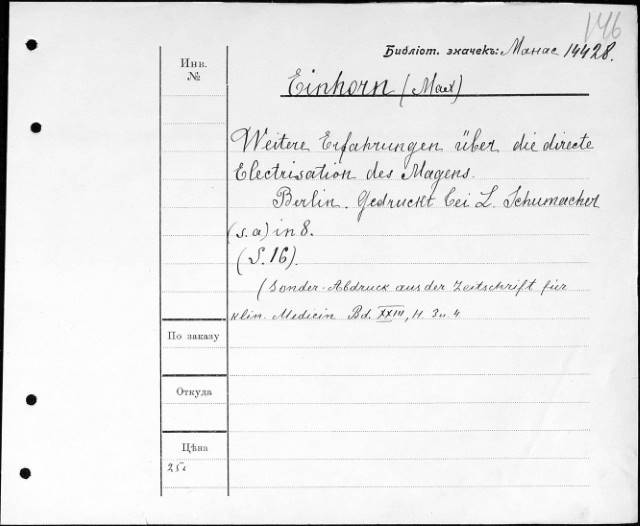 146
Библіот. значекъ: Манас 14428.
Инв.
№
Einhorn (Max)
Weitere Erfahrungen über die directe
Electrisation des Magens.
Berlin. Gedruckt bei L. Schumacher
(s. a) in 8.
(S. 16).
(Sonder-Abdruck aus der Zeitschrift für
klin. Medicin Bd. XXIII, H. 3 u. 4
По заказу
Откуда
Цѣна